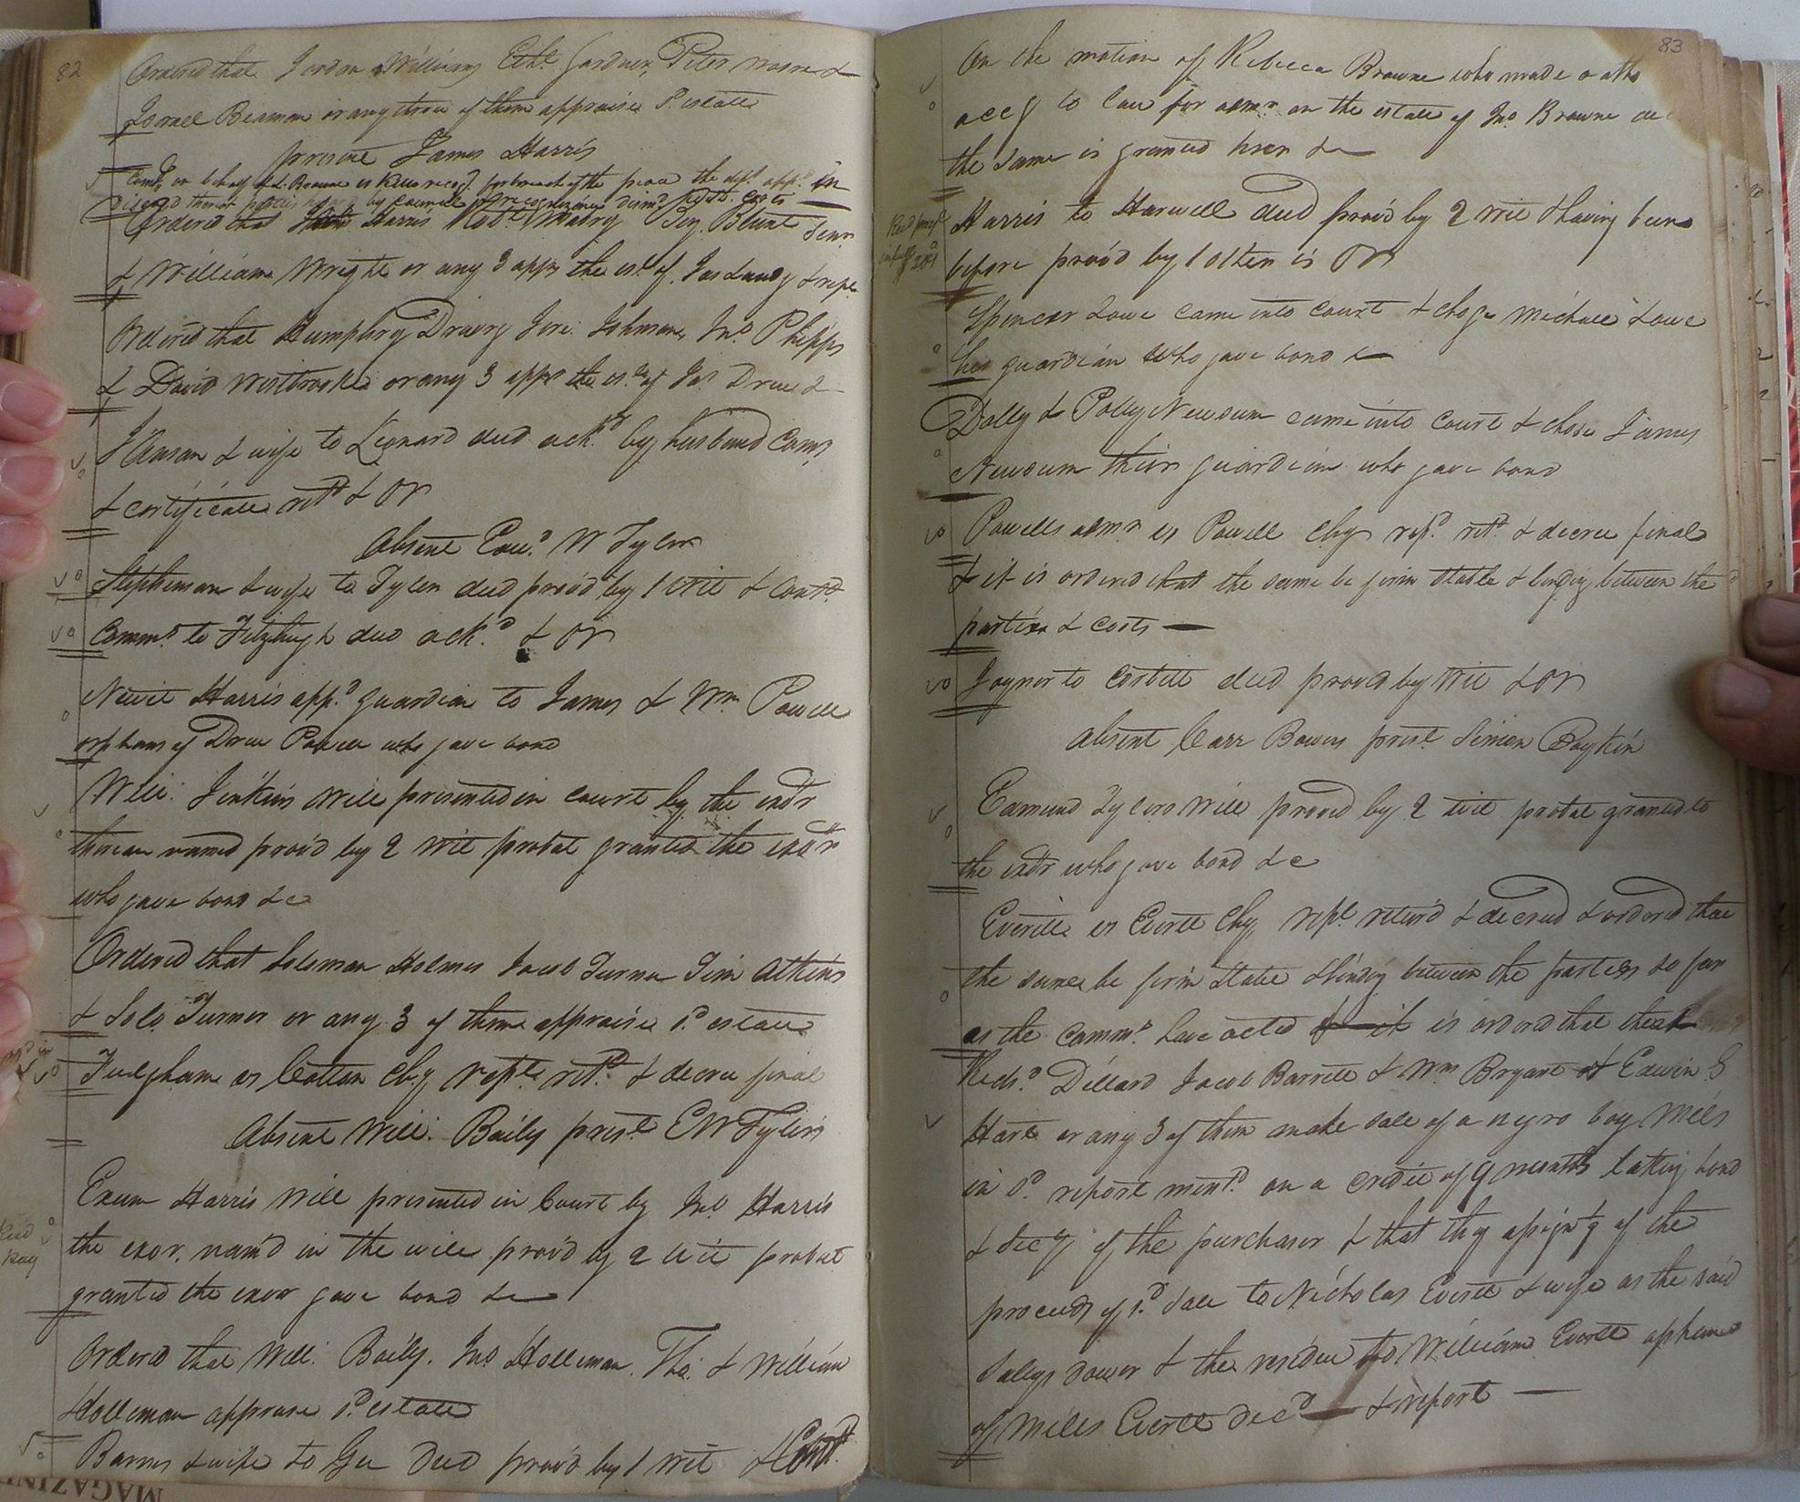 82
Ordered that Jordon Williams Ethd. Gardner, Peter Moore &
Israel Beamon or any three of them appraise sd. estate
present James Harris
Comth. on behalf of L. Browne vs Kello recog. for breach of the peace the deft. appd. in
by council recognizance dismd. costs
Ordered that Harris Robt. Mabry Benj. Blunt Senr
& William Wright or any 3 appr the est. of Jas Lundy & rept.
Ordered that Humphrey Drewry Jere. Johnson, Jno. Phipps
& David Westbrook or any 3 appr the est. of Jas Drew &
& wife to Leonard deed ackd. by husband Coms.
& certificate retd & OR
Absent Edwd. W Tyler
Stephenson & wife to Tyler deed provd by 1 wit & Contd.
Commrs. to Fitzhugh deed ackd. & OR
Newit Harris appd. guardian to James & Wm. Powell
orphans of Drew Powell who gave bond
Will: Jenkins Will presented in court by the exōr
therein named provd by 2 wit probat granted the exōr
who gave bond &c
Ordered that Soloman Holmes Jacob Turner Jim Atkins
& Solo Turner or any 3 of them appraise sd. estate
Fulgham vs Cotton Chy rept. retd. & decree final
Absent Will: Baily prest E W Tyler
Exum Harris Will presented in Court by Jno Harris
the exor. namd in the will provd by 2 wit probat
granted the exor gave bond &c
Ordered that Will: Baily. Jno Holleman. Tho: & William
Holleman appraise sd. estate
Barnes & wife to Gee Deed provd by 1 wit & Contd.
83
On the motion of Rebecca Browne who made oath
accg to law for admn on the estate of Jno. Browne dec
the same is granted her &c
Harris to Harwell deed provd by 2 wit & having been
before provd by 1 other is OR
Spencer Lowe came into court & chose Michael Lowe
his guardian who gave bond &
Dolly & Polly Newsum came into court & chose James
Newsum their guardian who gave bond
Powells admr vs Powell Chy rept. retd. & decree final
& it is ordered that the same be firm stable & binding between the
parties & costs
Joyner to Corbitt deed provd by wit & OR
Absent Carr Bowers prest. Simon Boykin
Edmund Tylers Will proved by 2 wit probat granted to
the exōr who gave bond &c
Everitt vs Everett Chy. rept. returd & decreed & ordered that
the same be firm stable & binding between the parties so far
as the commrs. have acted & it is ordered that
Richd. Dillard Jacob Barrett & Wm Bryant & Edwin S
Hart or any 3 of them make sale of a negro boy Miles
in sd. report mentd. on a credit of 9 months taking bond
& secy of the purchaser & that they assign of the
proceeds of sd. sale to Nicholas Everett & wife as the said
Sallys dower & the residue to William Everett orphan
of Miles Everett decd & report
MAGAZIN